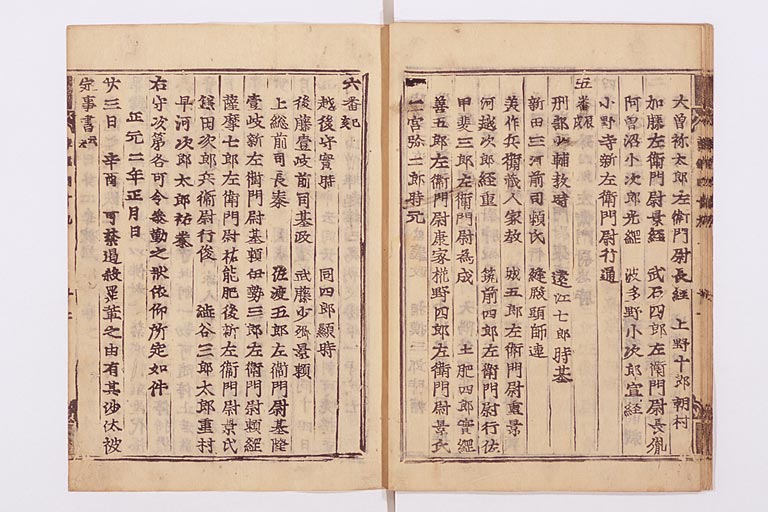 大曽祢太郎左衛門尉長經 上野十郎朝村
加藤左衛門尉景經 武石四郎左衛門尉長胤
阿曽沼小次郎光經 波多野小次郎宣經
小野寺新左衛門尉行通
五番
刑部少輔教時 遠江七郎時基
新田三河前司頼氏 縫殿頭師連
美作兵衛蔵人家教 城五郎左衛門尉重景
河越次郎經重 筑前四郎左衛門尉行佐
甲斐三郎左衛門尉為成 土肥四郎實經
善五郎左衛門尉康家 梶野四郎左衛門尉景氏
二宮弥二郎時元
六番
越後守實時 同四郎顕時
後藤壹岐前司基政 武藤少卿景頼
上総前司長泰 佐渡五郎左衛門尉基隆
壹岐新左衛門尉基頼 伊勢三郎左衛門尉頼經
薩摩七郎左衛門尉祐能 肥後新左衛門尉景氏
鎌田次郎兵衛尉行俊 澁谷三郎太郎重村
早河次郎太郎祐泰
右守次第各可令参勤之状依仰所定如件
正元二年正月日
廿三日 辛酉 可禁遏殺罪輩之由有其沙汰被
定事書